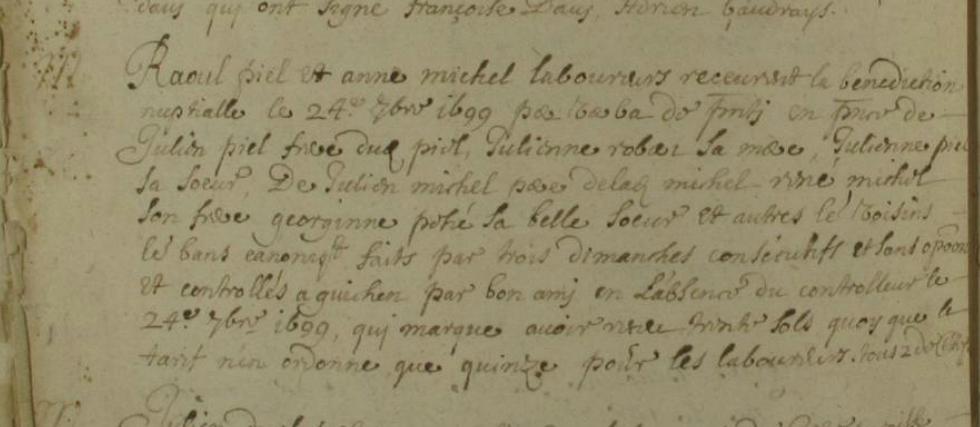 daus qui ont signe françoise Daus, Adrien baudrays.
Raoul piel et anne michel laboureurs receurent la benediction
nuptialle le 24e 7bre 1699 de en de
Julien piel frere dud piel, Julienne sa mere, Julienne piel
sa soeur, De Julien michel pere de lad michel rené michel
son frere georginne sa belle soeur et autres les Voisins
les bans faits par trois dimanches consecutifs et sans
et controllés a guichen par bon amj en L'absence du controlleur le
24e 7bre 1699, qui marque avoir receu trente sols quoy que le
tarif n'en ordonne que quinze pour les laboureurs. tous 2 de